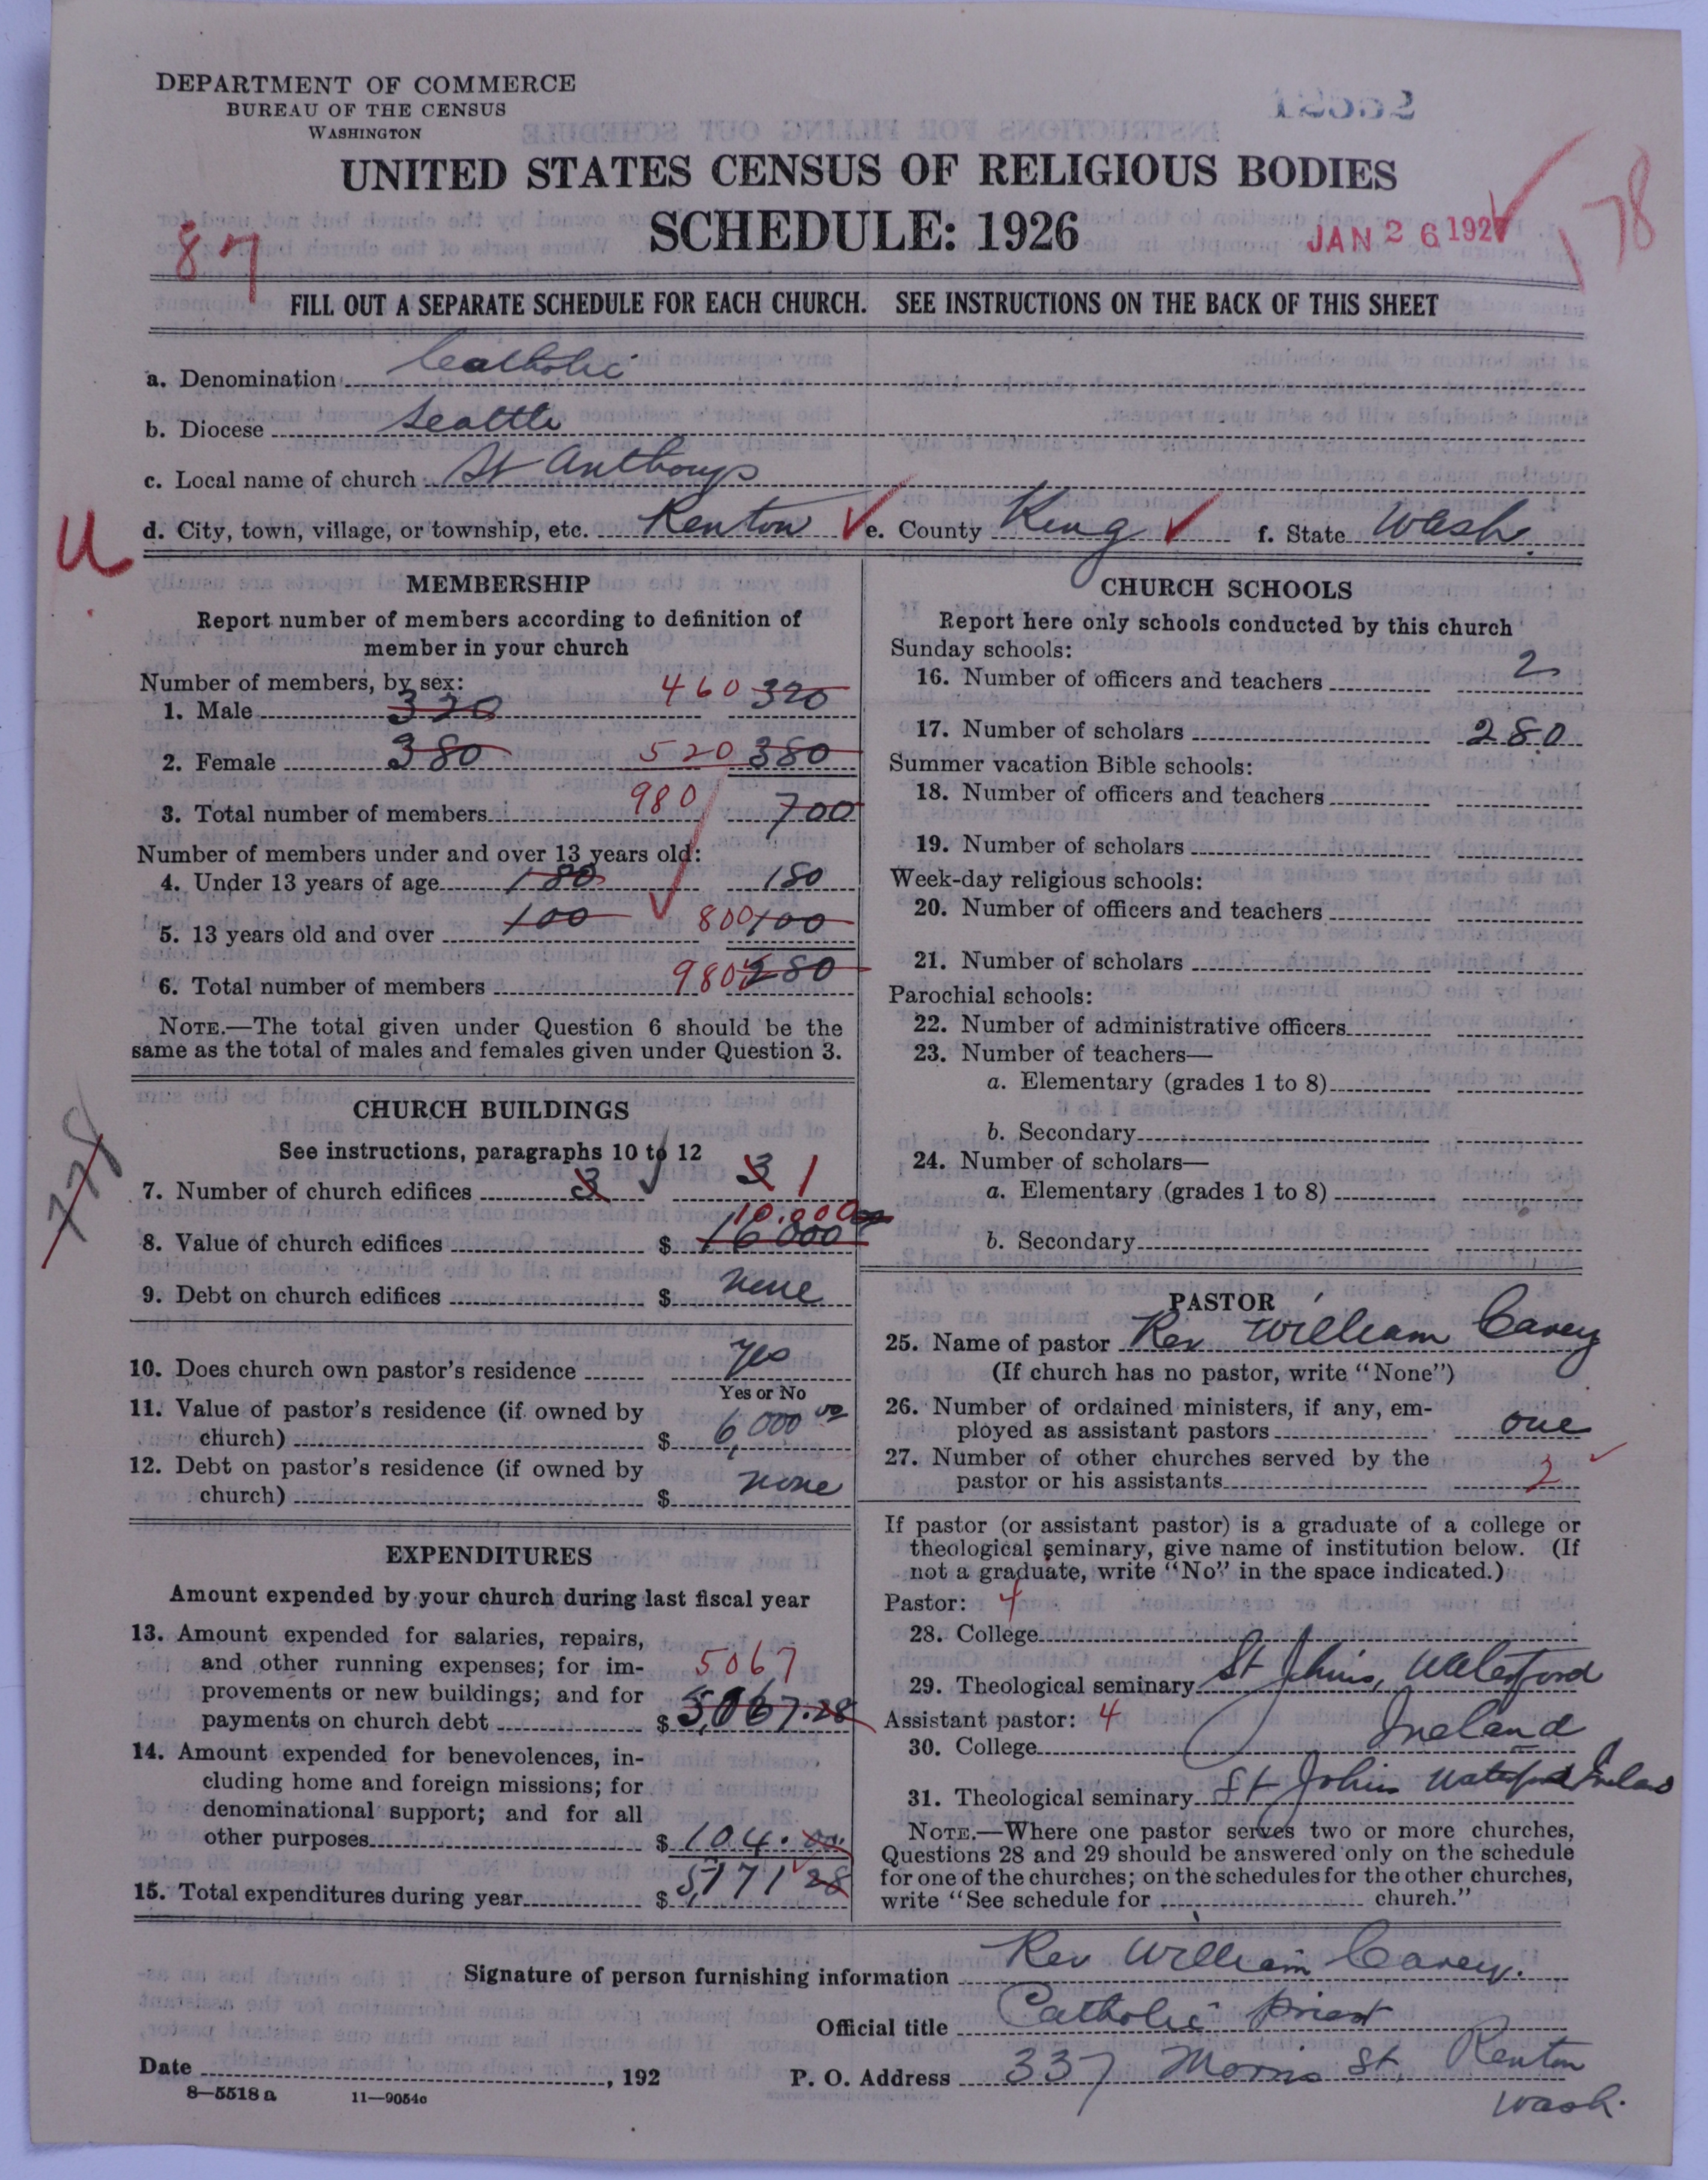 DEPARTMENT OF COMMERCE
BUREAU OF THE CENSUS
WASHINGTON
UNITED STATES CENSUS OF RELIGIOUS BODIES
SCHEDULE: 1926
JAN 26 1927
78
87
FILL OUT A SEPARATE SCHEDULE FOR EACH CHURCH. SEE INSTRUCTIONS ON THE BACK OF THIS SHEET
a. Denomination Catholic
b. Diocese Seattle
c. Local name of church St Anthonys
U
d. City, town, village, or township, etc. Renton e. County King f. State Wash.
MEMBERSHIP
Report number of members according to definition of
member in your church
Number of members, by sex:
1. Male 320 460 320
2. Female 380 520 380
3. Total number of members 980 700
Number of members under and over 13 years old:
4. Under 13 years of age 180 180
5. 13 years old and over 100 800 100
6. Total number of members 980 280
NOTE.—The total given under Question 6 should be the
same as the total of males and females given under Question 3.
CHURCH BUILDINGS
See instructions, paragraphs 10 to 12
778
7. Number of church edifices 3 3 1
10,000
8. Value of church edifices $ 16000
9. Debt on church edifices $ none
10. Does church own pastor's residence yes
Yes or No
11. Value of pastor's residence (if owned by
church) $ 6,000 00
12. Debt on pastor's residence (if owned by
church) $ none
EXPENDITURES
Amount expended by your church during last fiscal year
13. Amount expended for salaries, repairs,
and other running expenses; for im-
provements or new buildings; and for
payments on church debt $ 5067 5,067.28
14. Amount expended for benevolences, in-
cluding home and foreign missions; for
denominational support; and for all
other purposes $ 104.00
15. Total expenditures during year $ 5,171 28
CHURCH SCHOOLS
Report here only schools conducted by this church
Sunday schools:
16. Number of officers and teachers 2
17. Number of scholars 280
Summer vacation Bible schools:
18. Number of officers and teachers
19. Number of scholars
Week-day religious schools:
20. Number of officers and teachers
21. Number of scholars
Parochial schools:
22. Number of administrative officers
23. Number of teachers—
a. Elementary (grades 1 to 8)
b. Secondary
24. Number of scholars—
a. Elementary (grades 1 to 8)
b. Secondary
PASTOR
25. Name of pastor Rev William Carey
(If church has no pastor, write "None")
26. Number of ordained ministers, if any, em-
ployed as assistant pastors one
27. Number of other churches served by the
pastor or his assistants 2
If pastor (or assistant pastor) is a graduate of a college or
theological seminary, give name of institution below. (If
not a graduate, write "No" in the space indicated.)
Pastor: 4
28. College
29. Theological seminary St Johns, Waterford
Assistant pastor: 4
30. College Ireland
31. Theological seminary St Johns Waterford Ireland
NOTE.—Where one pastor serves two or more churches,
Questions 28 and 29 should be answered only on the schedule
for one of the churches; on the schedules for the other churches,
write "See schedule for church."
Signature of person furnishing information Rev William Carey.
Official title Catholic priest
Date , 192 P. O. Address 337 Morris St, Renton
Wash.
8—5518 a 11—9054c